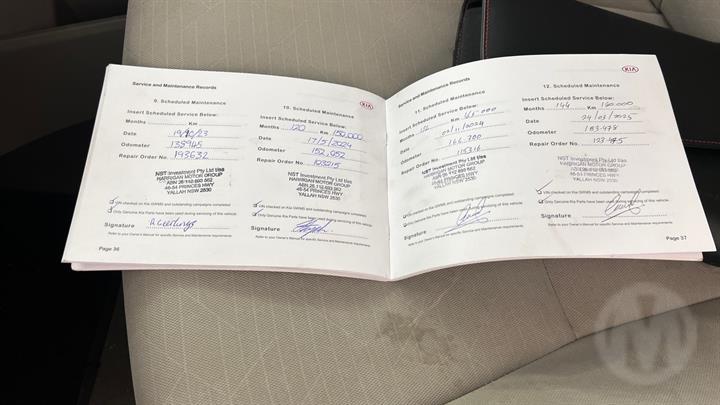 Service and Maintenance Records
KIA
9. Scheduled Maintenance
Insert Scheduled Service Below:
Months Km
Date 19/10/23
Odometer 138945
Repair Order No. 193632
NST Investment Pty Ltd t/as
HARRIGAN MOTOR GROUP
ABN 26 112 693 662
46-54 PRINCES HWY
YALLAH NSW 2530
VIN checked on Kia GWMS and outstanding campaigns completed
Only Genuine Kia Parts have been used during servicing of this vehicle
Signature
Refer to your Owner's Manual for specific Service and Maintenance requirements
Page 36
10. Scheduled Maintenance
Insert Scheduled Service Below:
Months 120 Km 150,000
Date 17/5/2024
Odometer 152,052
Repair Order No. 103215
NST Investment Pty Ltd t/as
HARRIGAN MOTOR GROUP
ABN 26 112 693 662
46-54 PRINCES HWY
YALLAH NSW 2530
VIN checked on Kia GWMS and outstanding campaigns completed
Only Genuine Kia Parts have been used during servicing of this vehicle
Signature
Refer to your Owner's Manual for specific Service and Maintenance requirements
Service and Maintenance Records
KIA
11. Scheduled Maintenance
Insert Scheduled Service Below:
Months Km 165.000
Date 02/11/2024
Odometer 166.700
Repair Order No. 115316
NST Investment Pty Ltd t/as
HARRIGAN MOTOR GROUP
46-54 PRINCES HWY
YALLAH NSW 2530
VIN checked on Kia GWMS and outstanding campaigns completed
Only Genuine Kia Parts have been used during servicing of this vehicle
Signature
Refer to your Owner's Manual for specific Service and Maintenance requirements
12. Scheduled Maintenance
Insert Scheduled Service Below:
Months 144 Km 180.000
Date 24/03/2025
Odometer 183.478
Repair Order No.
NST Investment Pty Ltd t/as
HARRIGAN MOTOR GROUP
46-54 PRINCES HWY
YALLAH NSW 2530
VIN checked on Kia GWMS and outstanding campaigns completed
Only Genuine Kia Parts have been used during servicing of this vehicle
Signature
Refer to your Owner's Manual for specific Service and Maintenance requirements
Page 37
M